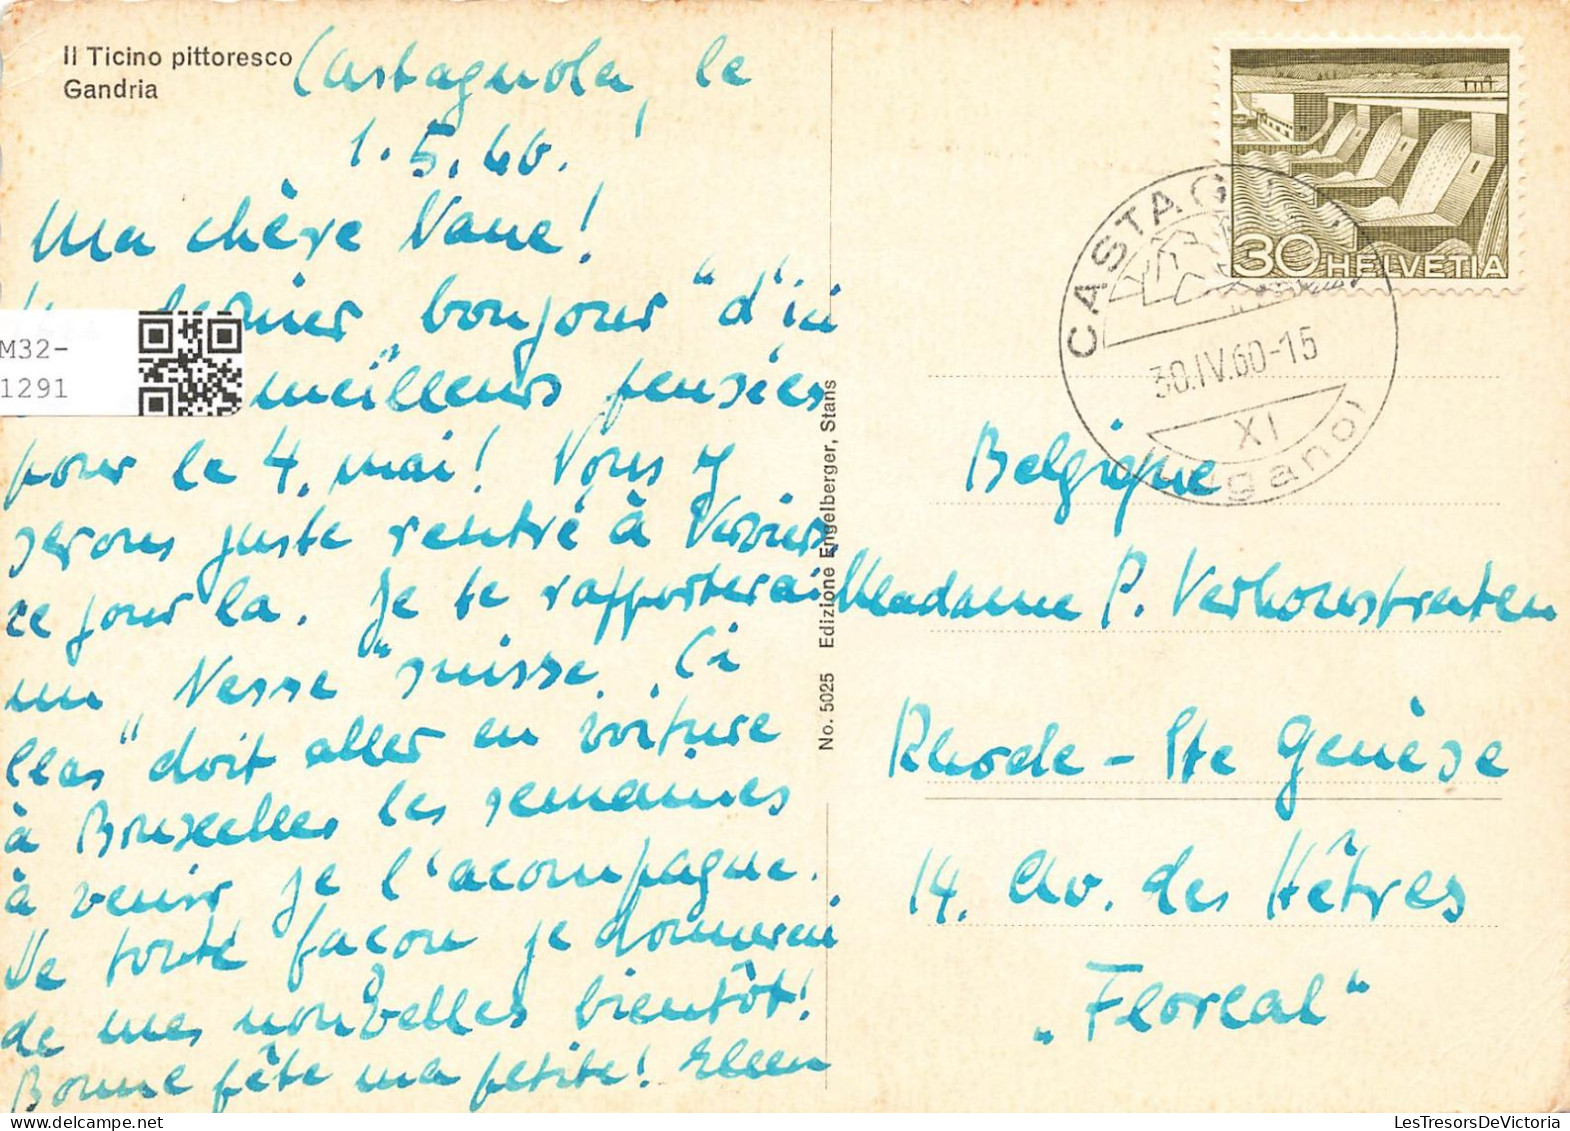 Il Ticino pittoresco
Gandria
Castagnola, le
1.5.60.
Ma chère Nane!
dernier bonjour "d'ici
meilleurs pensées
pour le 4. mai! Nous y
serons juste rentré à Verviers
ce jour la. Je te rapporterai
un "Nesse" suisse.
doit aller en voiture
à Bruxelles les semaines
à venir je l'acompagne.
De toute façon je donnerai
de mes nouvelles bientôt!
Bonne fête ma petite! Ellen
M32-
1291
No. 5025 Edizione Engelberger, Stans
30 HELVETIA
CASTAG
30.IV.60-15
XI
(Lugano)
Belgique
Madame P. Verhoustraeten
Rhode-Ste Genèse
14. Av. des Hêtres
„Floreal"
LesTresorsDeVictoria